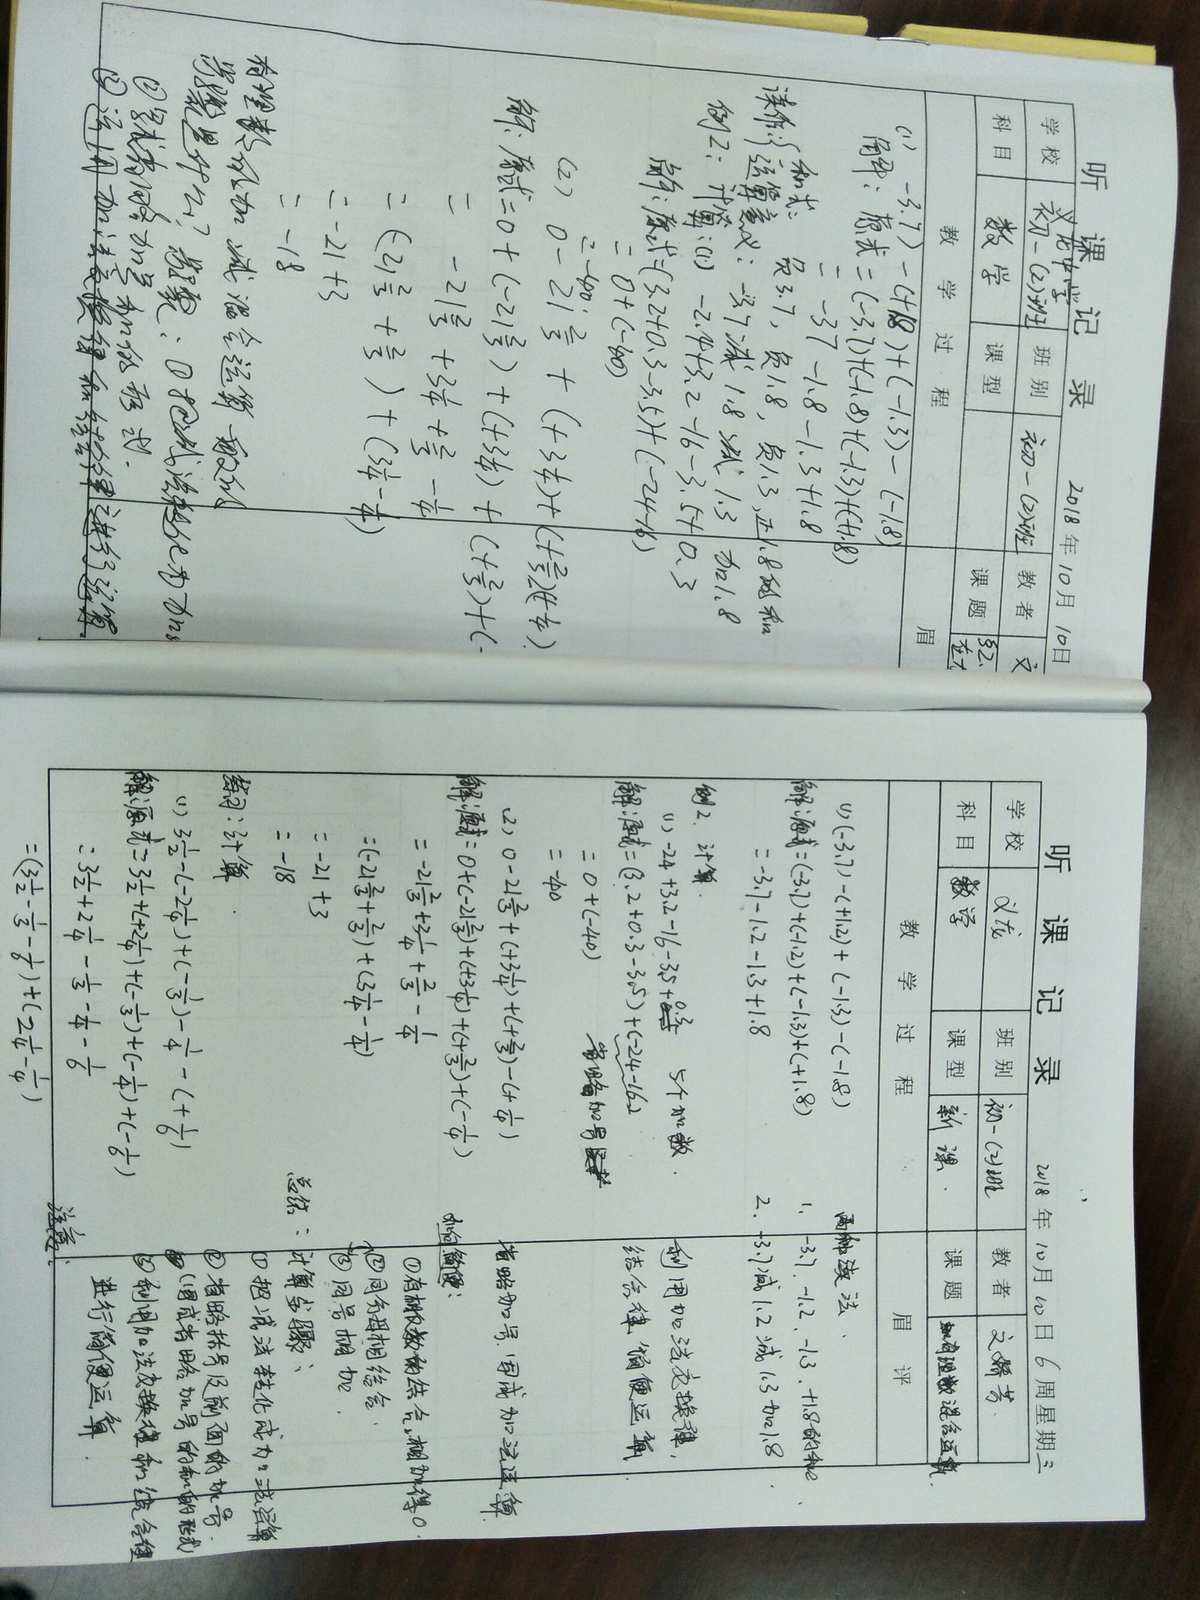 听 课 记 录
2018年10月10日
学校 义龙中学 初一(2)班 班别 初一(2)班 教者 文
科目 数学 课型 课题
教 学 过 程 眉
(1) -3.7)-(+1.8)+(-1.3)-(-1.8)
解:原式=(-3.7)+(-1.8)+(-1.3)+(+1.8)
= -3.7-1.8-1.3+1.8
和式: 负3.7,负1.8,负1.3,正1.8的和
读作: 运算意义: -3.7减1.8减1.3加1.8
例2:计算:(1) -24+3.2-16-3.5+0.3
解:原式=(3.2+0.3-3.5)+(-24-16)
= 0+(-40)
= -40
(2) 0-21⅔+(+3¼)+(+⅔)+(-¼)
解:原式=0+(-21⅔)+(+3¼)+(+⅔)+(-
= -21⅔+3¼+⅔-¼
= (-21⅔+⅔)+(3¼-¼)
= -21+3
= -18
有理数的加减混合运算
步骤是什么?
②写成省略加号和的形式.
③运用加法交换律和结合律进行运算
听 课 记 录
2018年10月10日6周星期三
学校 义龙 班别 初一(2)班 教者 文
科目 数学 课型 新课. 课题 有理数混合运算
教 学 过 程 眉 评
(1) (-3.7)-(+1.2)+(-1.3)-(-1.8)
解:原式=(-3.7)+(-1.2)+(-1.3)+(+1.8)
= -3.7-1.2-1.3+1.8
例2.计算.
(1) -24+3.2-16-3.5+0.3 5个加数.
解:原式=(3.2+0.3-3.5)+(-24-16)
= 0+(-40) 省略加号
= -40
(2) 0-21⅔+(+3¼)+(+⅔)-(+¼)
解:原式=0+(-21⅔)+(+3¼)+(+⅔)+(-¼)
= -21⅔+3¼+⅔-¼
=(-21⅔+⅔)+(3¼-¼)
= -21+3
= -18
练习:计算.
(1) 3½-(-2¼)+(-⅓)-¼-(+⅙)
解:原式=3½+(+2¼)+(-⅓)+(-¼)+(-⅙)
= 3½+2¼-⅓-¼-⅙
=(3½-⅓-⅙)+(2¼-¼)
两种读法.
1. -3.7、-1.2、-1.3、+1.8的和.
2. -3.7减1.2减1.3加1.8
利用加法交换律,
结合律简便运算.
省略加号,写成加法运算.
如何简便:
①有相反数的结合,相加得0.
②同分母相结合.
③同号相加.
总结:计算步骤:
①把减法转化成为加法运算
②省略括号及前面的加号.
(写成省略加号的和的形式
注意:③利用加法交换律和结合律
进行简便运算.